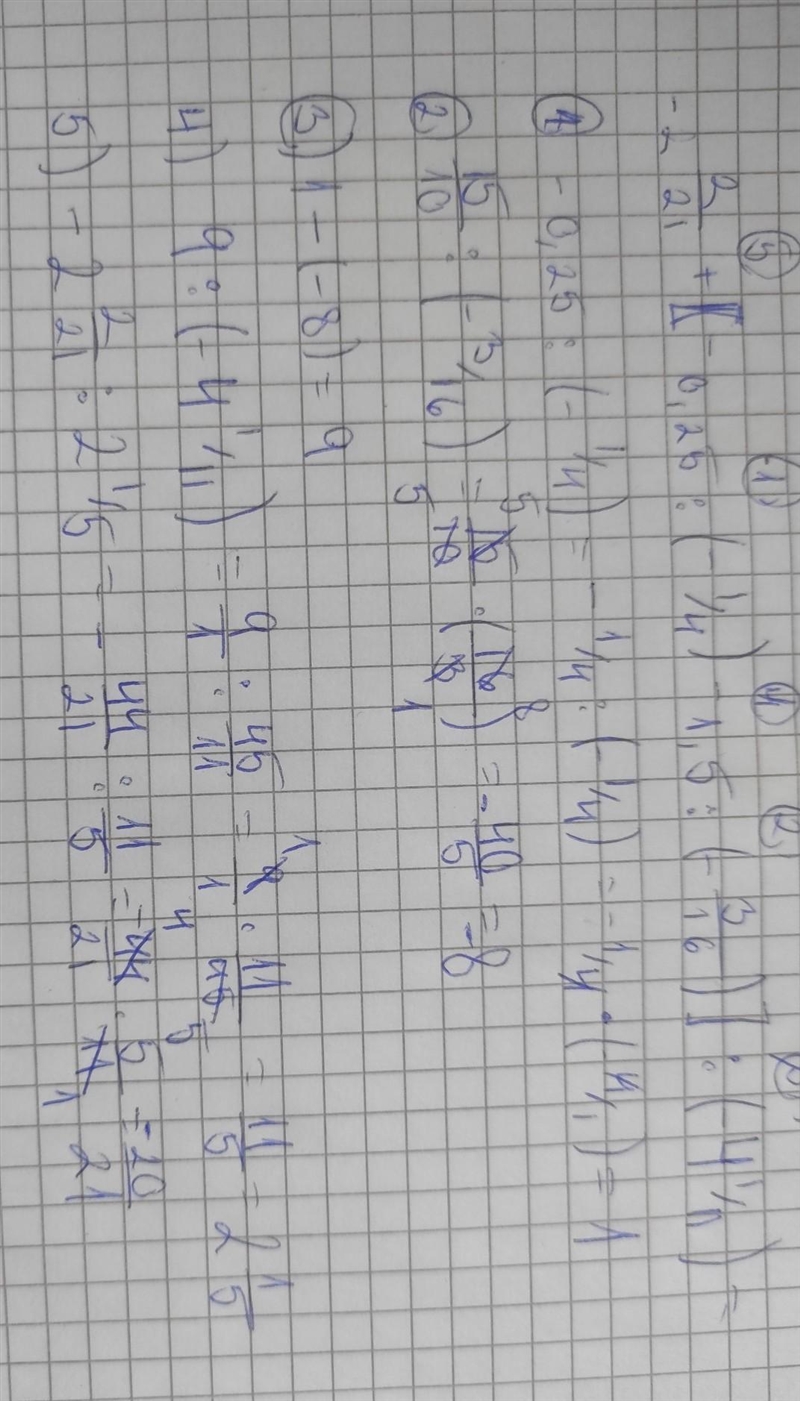 ⑤ ① ④ ②
-2 2/21 + [-0,25 : (-1/4) - 1,5 : (-3/16)] : (-4 1/11) =
① -0,25 : (-1/4) = -1/4 : (-1/4) = -1/4 · (-4/1) = 1
② 15/10 : (-3/16) = 15/10 · (16/3) = -40/5 = -8
③ 1 - (-8) = 9
4) 9 : (-4 1/11) = 9/1 : 45/11 = 9/1 · 11/45 = 11/5 = 2 1/5
5) -2 2/21 : 2 1/5 = -44/21 : 11/5 = -44/21 · 5/11 = 20/21